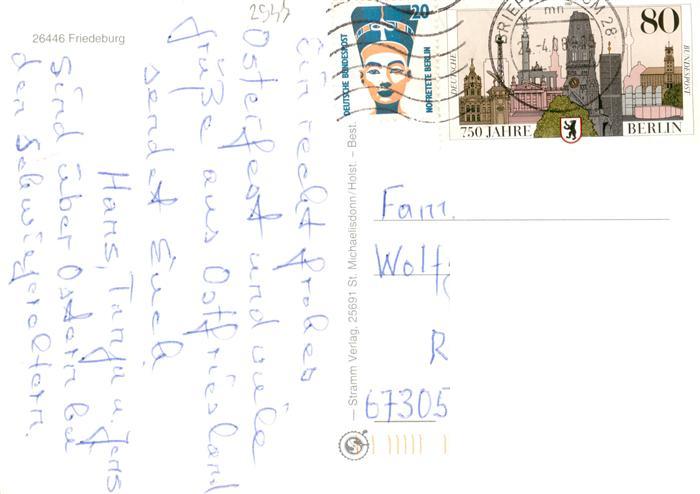 26446 Friedeburg
2944
Ein recht frohes
Osterfest und viele
Grüße aus Ostfriesland
sendet Euch
Hans, Tanja u. Jens
Sind über Ostern bei
den Schwiegereltern.
— Stramm Verlag, 25691 St. Michaelisdonn/Holst. – Best.
DEUTSCHE BUNDESPOST
20
NOFRETETE BERLIN
BRIEFZENTRUM 28
mn
DEUTSCHE
80
BUNDESPOST
750 JAHRE
BERLIN
Fam.
Wolf
R
67305